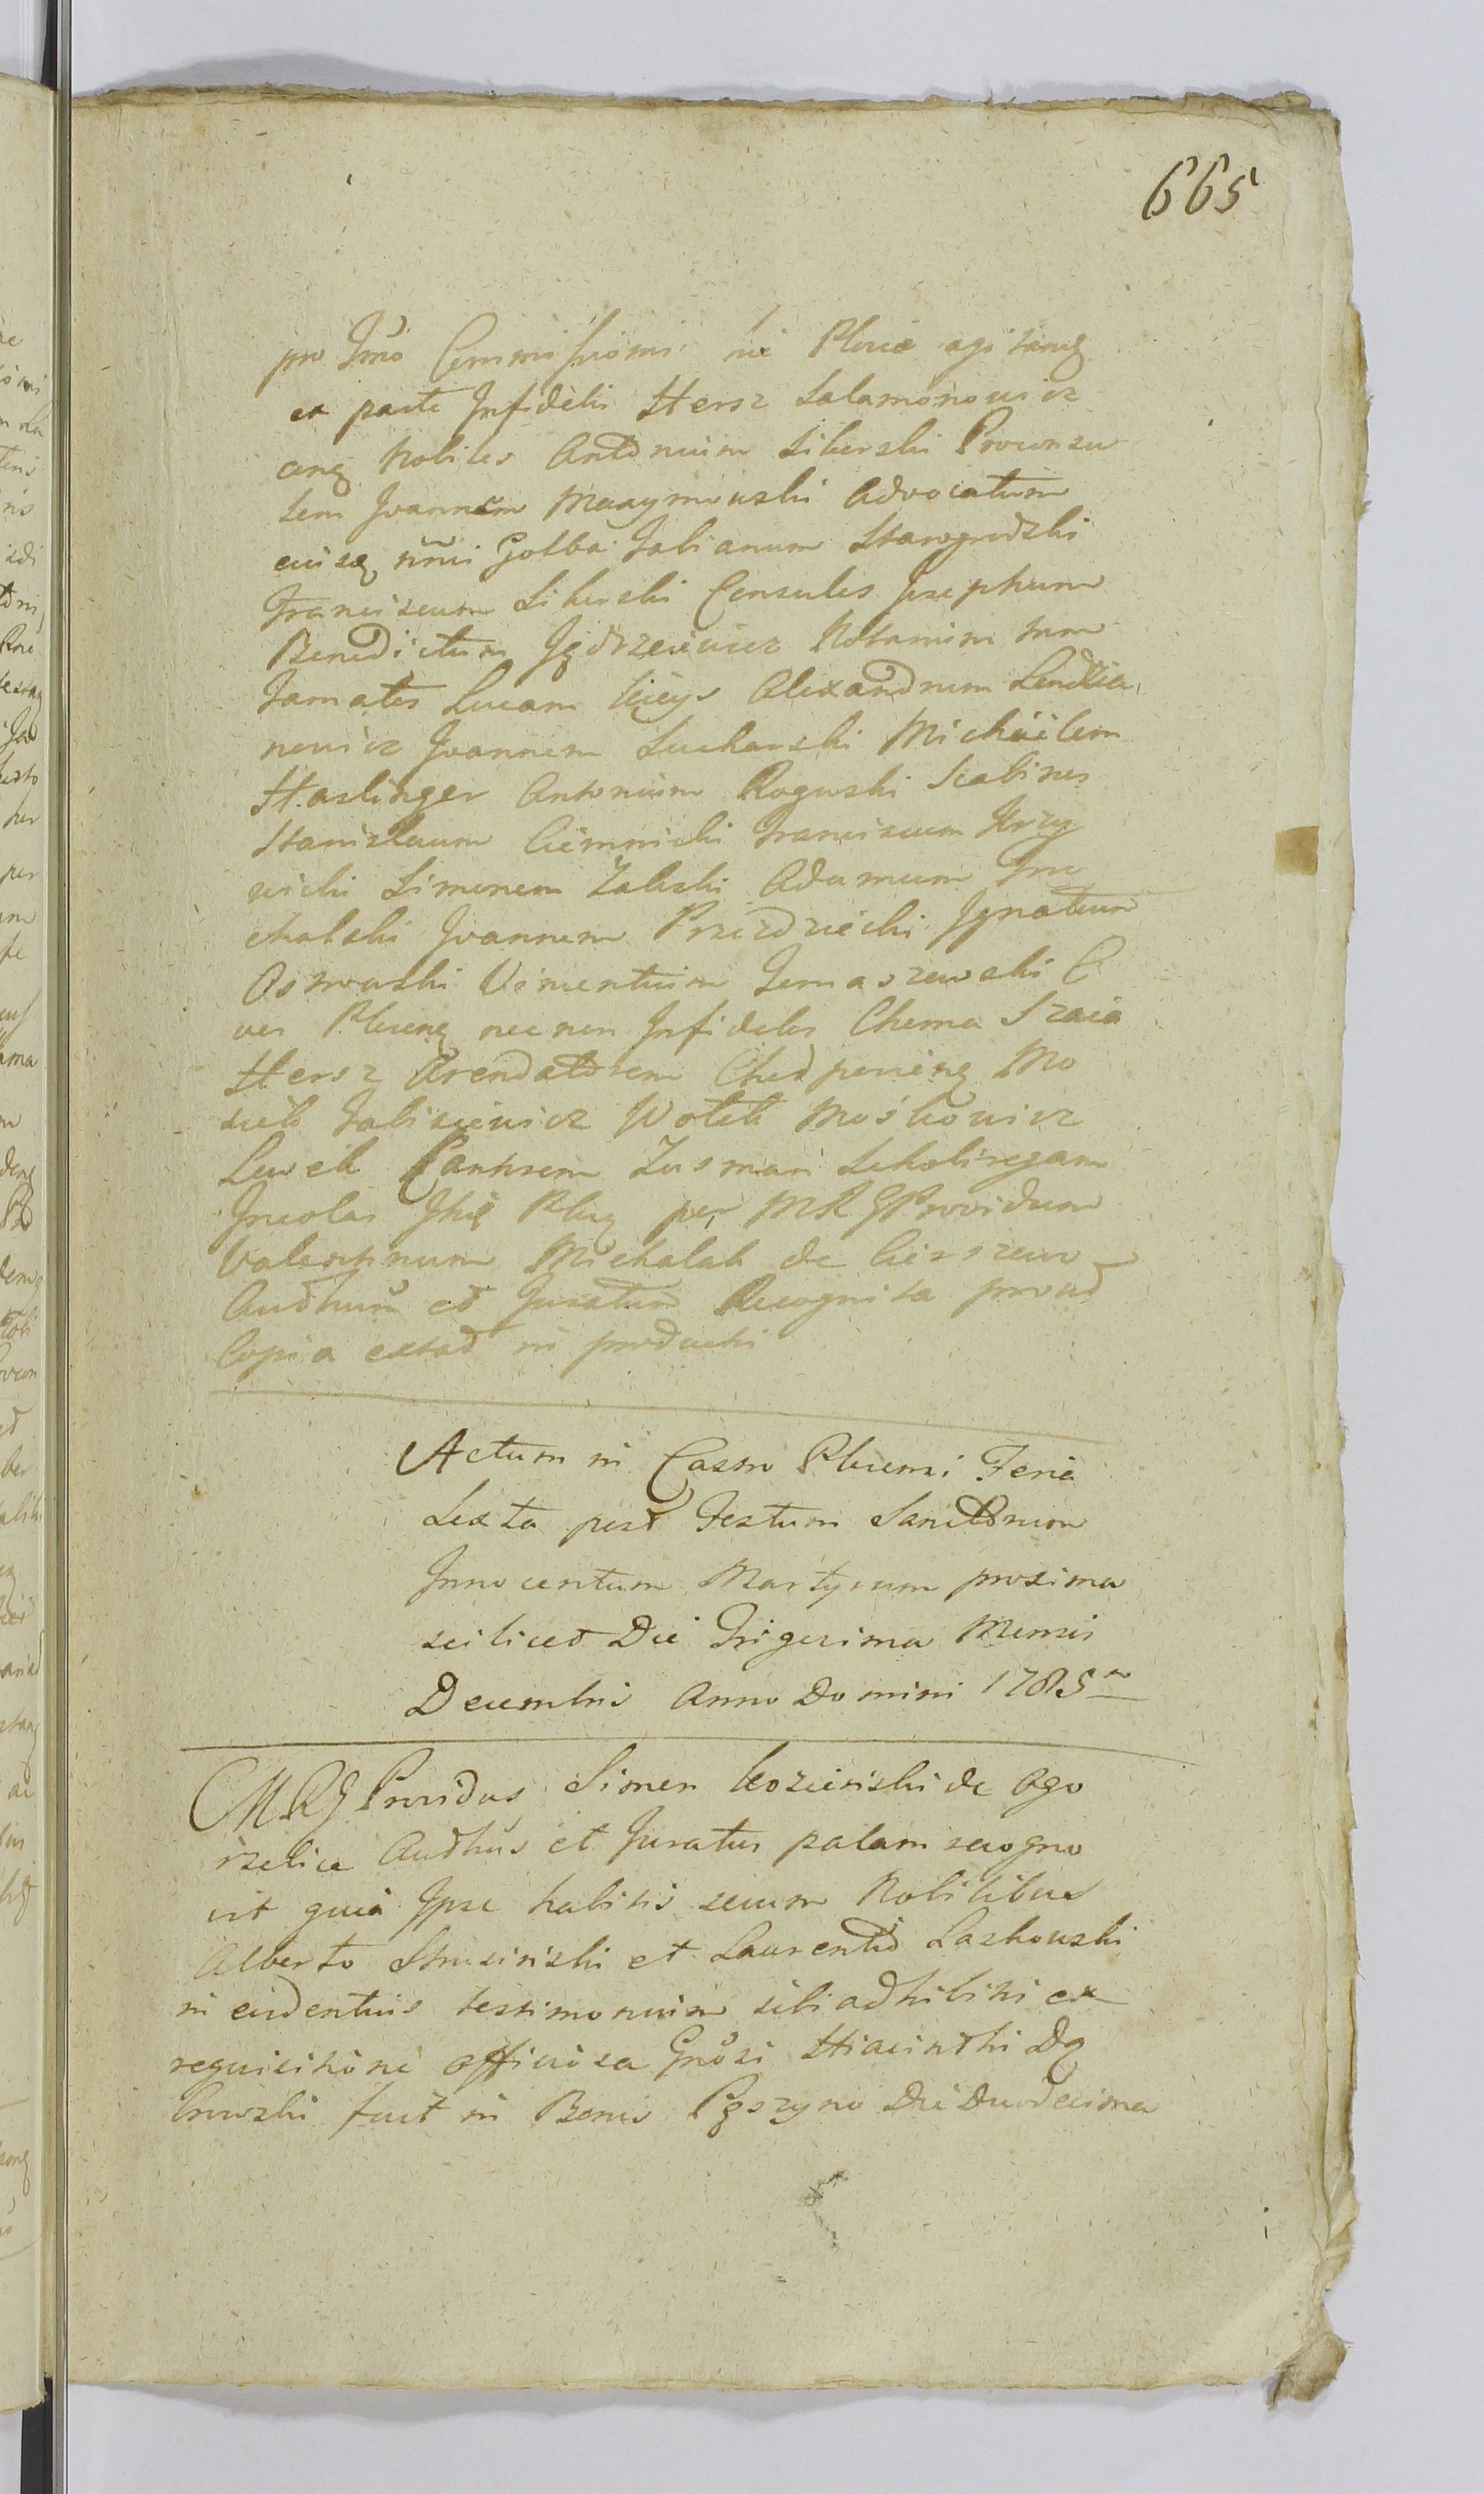 665
pro Imo Commissioni in Plocie agitang
ex parte Infidelis Hersz Salamonowicz
ang Nobiles Antonium Siberski Proconsu
lem Joannem Maxymowski Advocatum
eiusq nnci Golba Fabianum Starogrodzki
Franciscum Siberski Consules Josephum
Benedictum Jędrzeiewicz Notarium Jura
Jamates Lucam Kieys Alexandrum Lendzia
nowicz Joannem Sucharski Michäelem
Haslinger Antonium Roguski Scabinos
Stanislaum Ciemnicki Franciscum Krzy
wicki Simonem Zaleski Adamum
chalski Joannem Przezdziecki Ignatium
Osmowski Vincentium Tomaszewski C
ves Plocen necnon Infideles Chema Szaia
Hersz Arendatorem Chedpenieng Mo
siek Jabisiewicz Wolek Moskowicz
Lewek Cantorem Zusman Scholiregam
Incolas Jhie Plcg per MRG Providum
Valentinum Michalak de Cierszewo
Authum et Juratum Recognita prout
Copia extat in producti
Actum in Castro Plocensi Feria
Sexta post Festum Sanctorum
Innocentum Martyrum proxima
scilicet Die Trigesima Mensis
Decembris Anno Domini 1785to
MRG Providus Simon Kozicinski de Ogo
rzelice Authus et Juratus palam recogno
vit quia Ipse habitis secum Nobilibus
Alberto Strusinski et Laurentio Laskowski
in evidentius testimonium sibi adhibitis ex
requisitione officiosa Gnosi Hiacinthi Dą
browski fuit in Bonis Pęszyno Die Duodecima